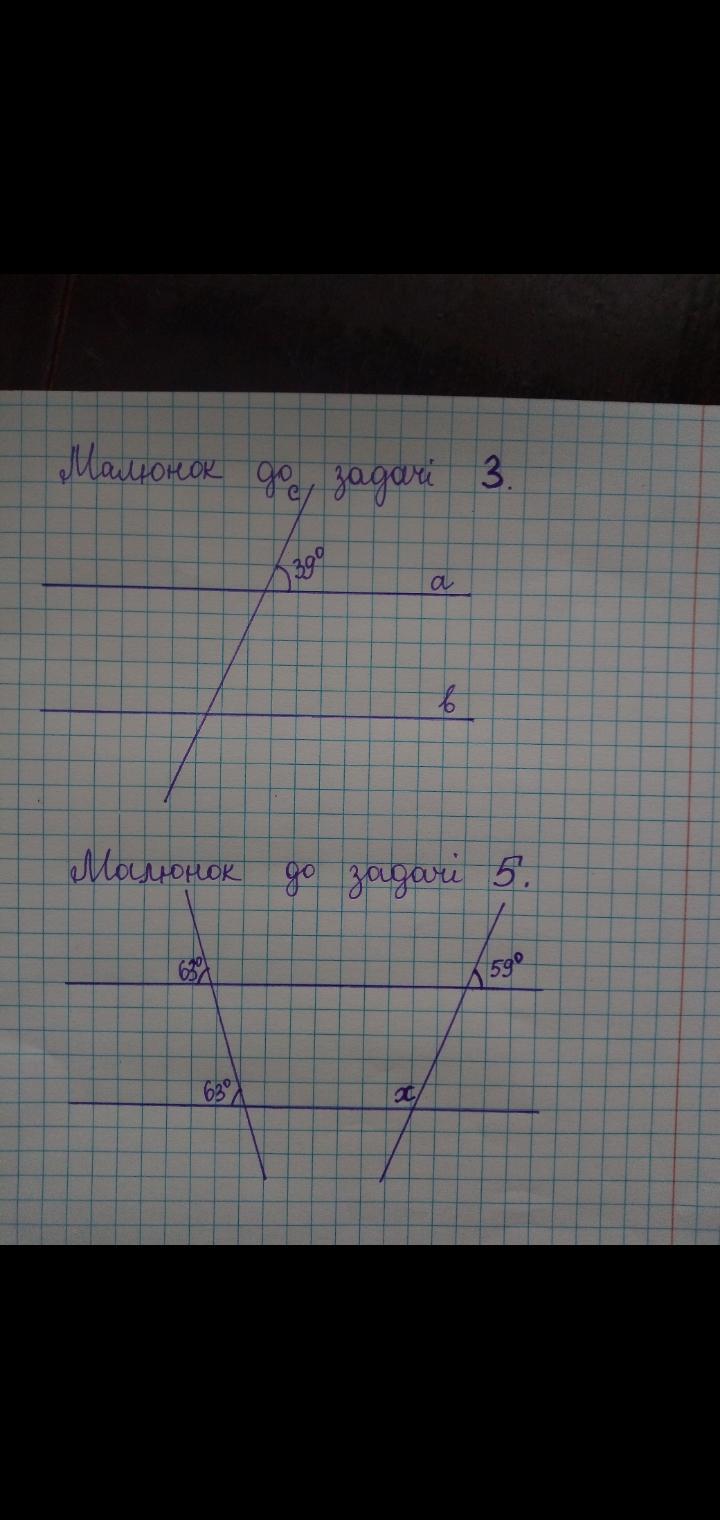 Малюнок до задачі 3.
c
39°
a
b
Малюнок до задачі 5.
63° 59°
63° x